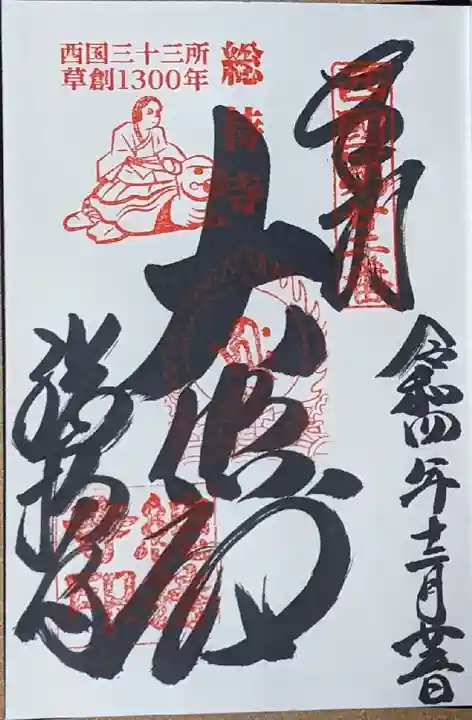 奉拝
西国第二十二番
令和四年十二月廿五日
総持寺
大悲閣
西国三十三所
草創1300年
総持寺
総持
寺印